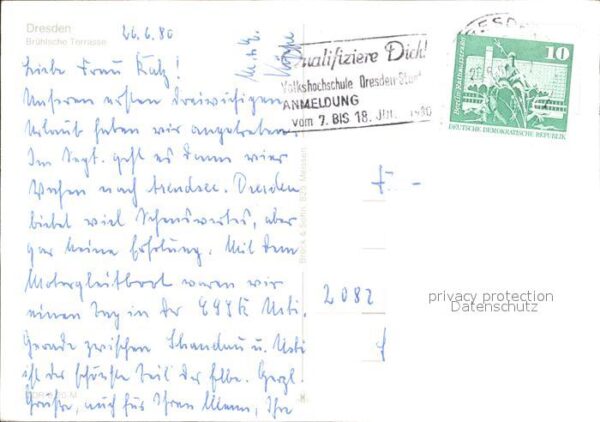 Dresden
Brühlsche Terrasse
26.6.80
Liebe Frau Katz!
Unseren ersten dreiwöchigen
Urlaub haben wir angetreten.
Im Sept. geht es dann vier
Wochen nach Arendsee. Dresden
bietet viel Sehenswertes, aber
gar keine Erholung. Mit dem
Motorgleitboot waren wir
einen Tag in der ČSSR Usti.
Gerade zwischen Schandau u. Usti
ist der schönste Teil der Elbe. Herzl.
Grüße, auch für Ihren Mann, Ihre
Brück & Sohn, 825 Meissen
Qualifiziere Dich!
Volkshochschule Dresden-Stadt
ANMELDUNG
vom 7. BIS 18. JULI 1980
DRESDEN
10
Berlin · Rathausstraße
DEUTSCHE DEMOKRATISCHE REPUBLIK
2082
privacy protection
Datenschutz